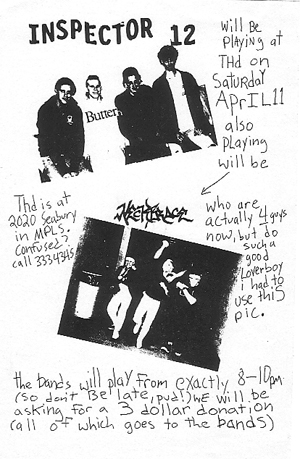 INSPECTOR 12
will Be
PLAYING at
THd on
SATURDAY
APrIL 11
also
PLAYING
will be
Butter
Thd is at
2020 Seabury
in MPLS.
confused?
call 333.4345
who are
actually 4 guys
now, but do
such a
good
Loverboy
i had to
use this
pic.
the bands will play from exactly 8-10pm
(so don't Be late, pud!) WE will be
asking for a 3 dollar donation
(all of which goes to the bands)